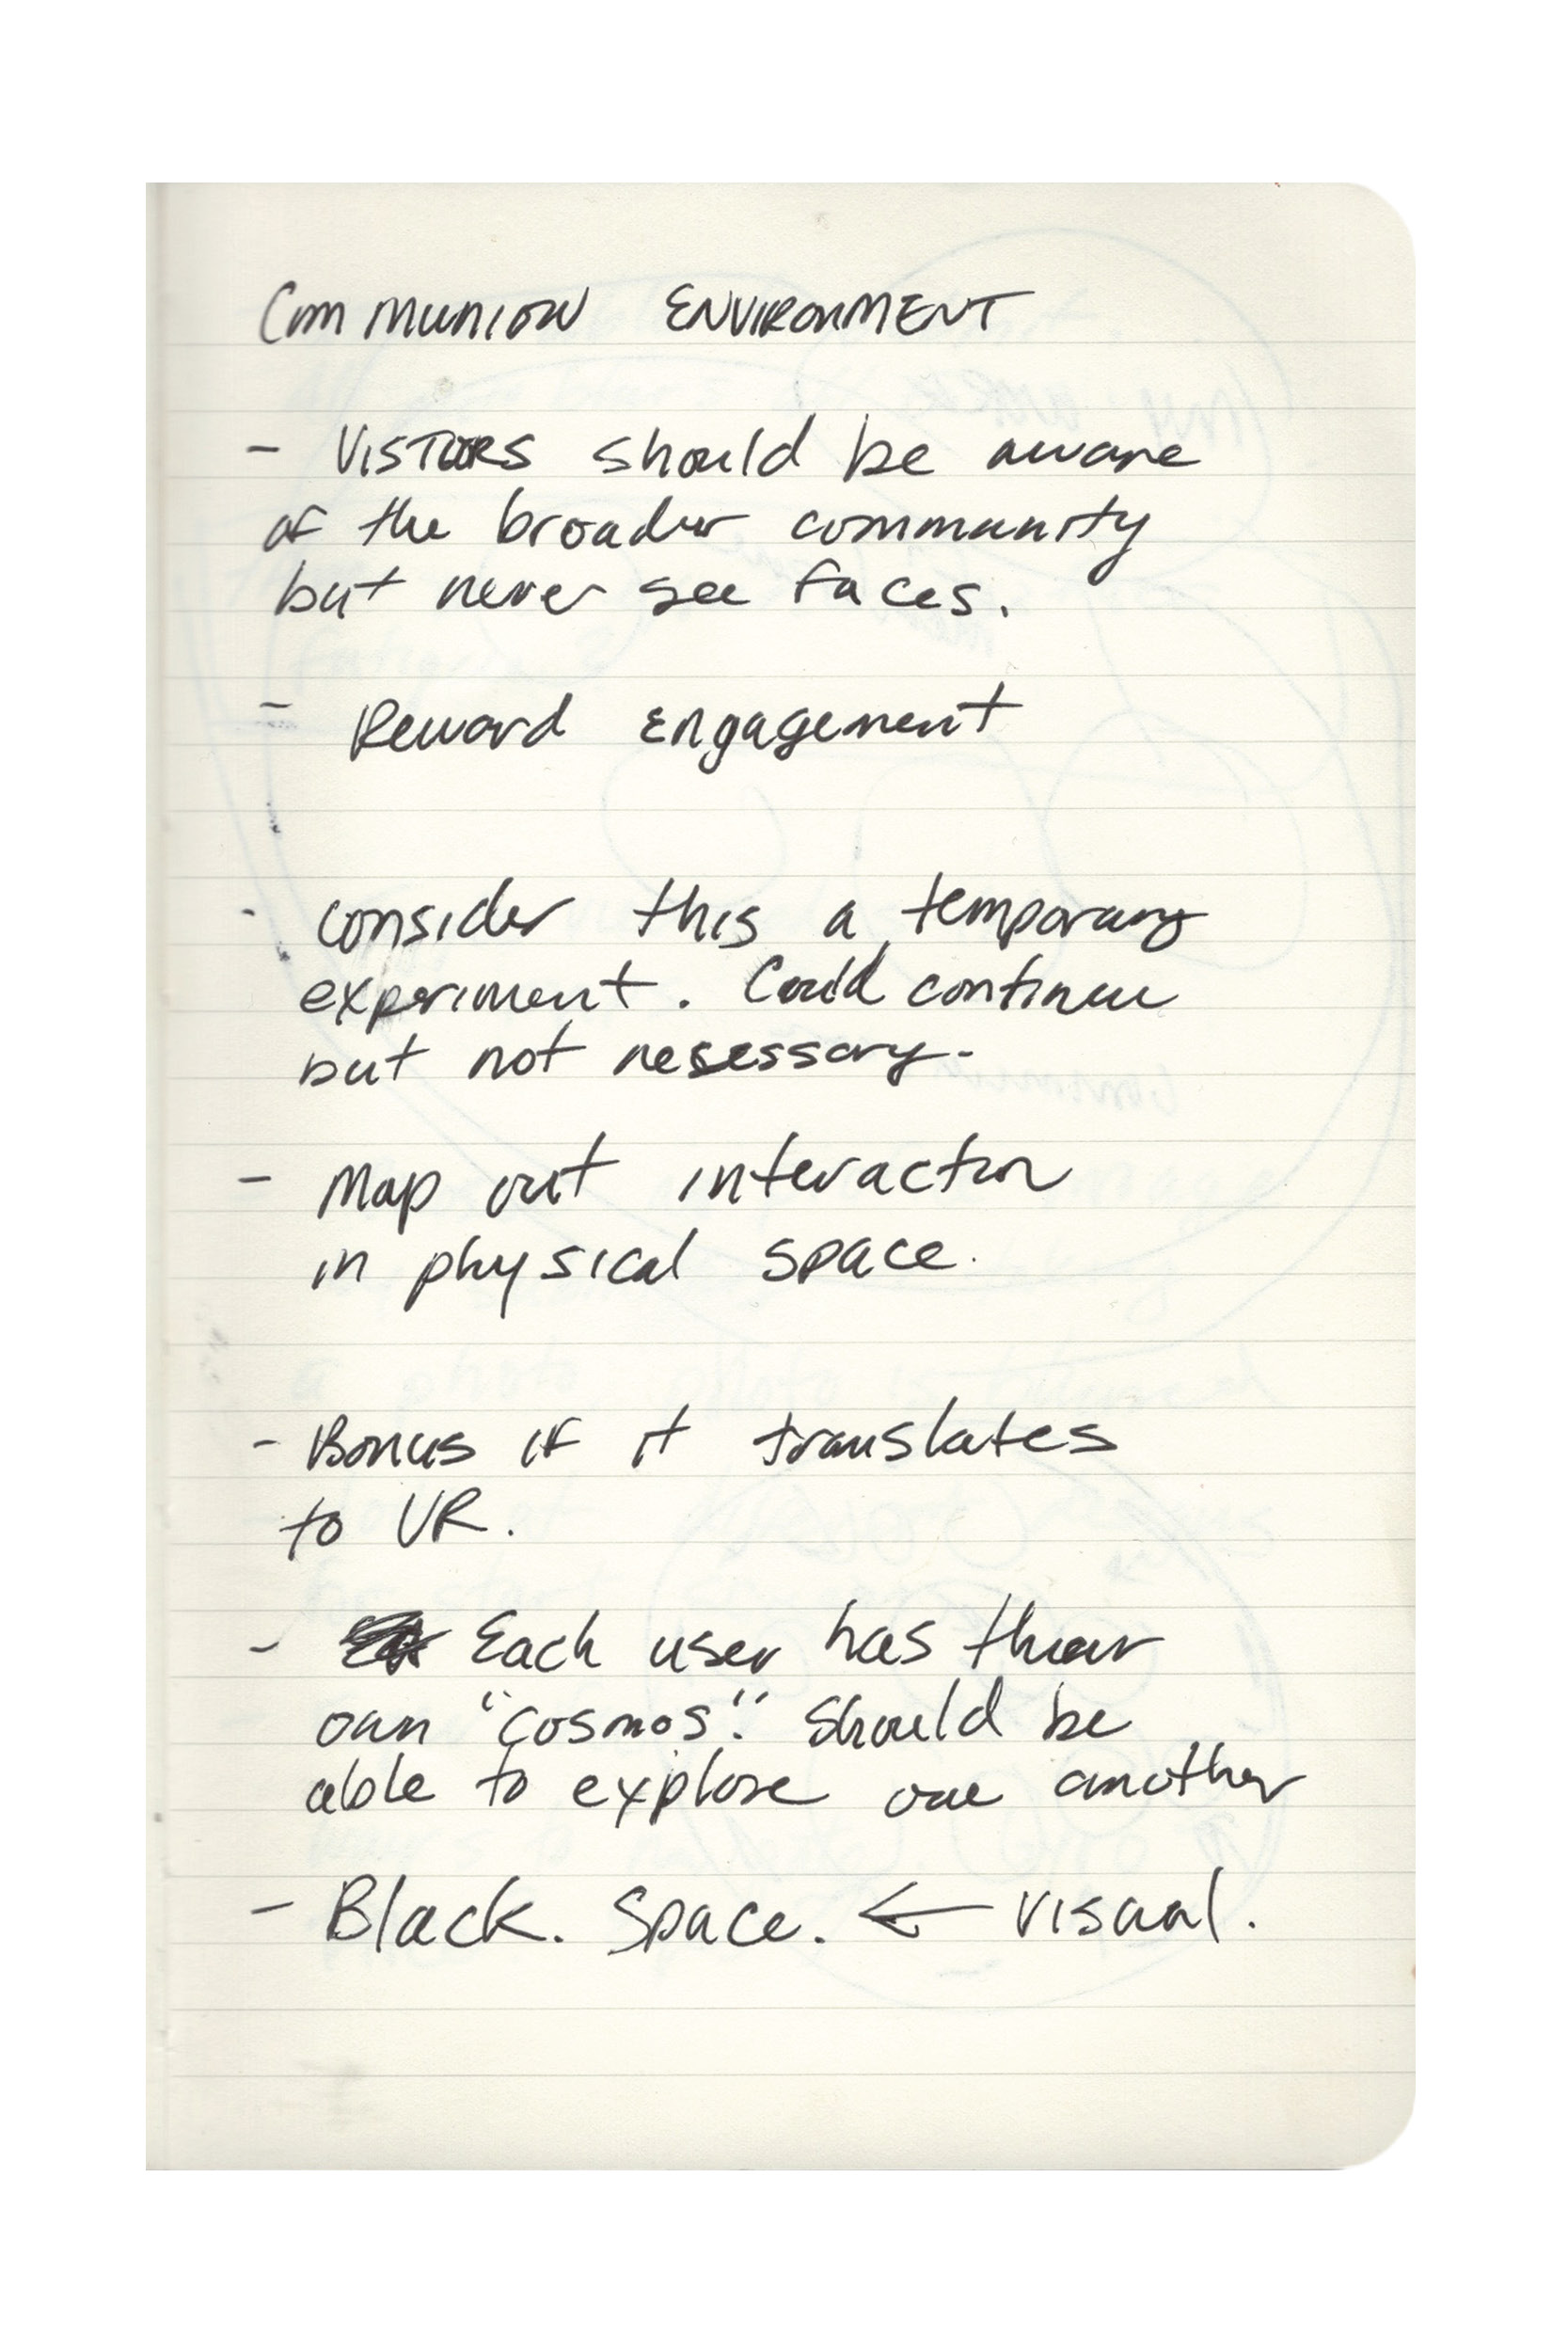 COMMUNION ENVIRONMENT
- VISTORS should be aware
of the broader community
but never see faces.
- Reward Engagement
- consider this a temporary
experiment. Could continue
but not nesessary.
- Map out interaction
in physical space.
- Bonus if it translates
to VR.
- Each user has their
own "cosmos". Should be
able to explore one another
- Black. Space. ← visual.